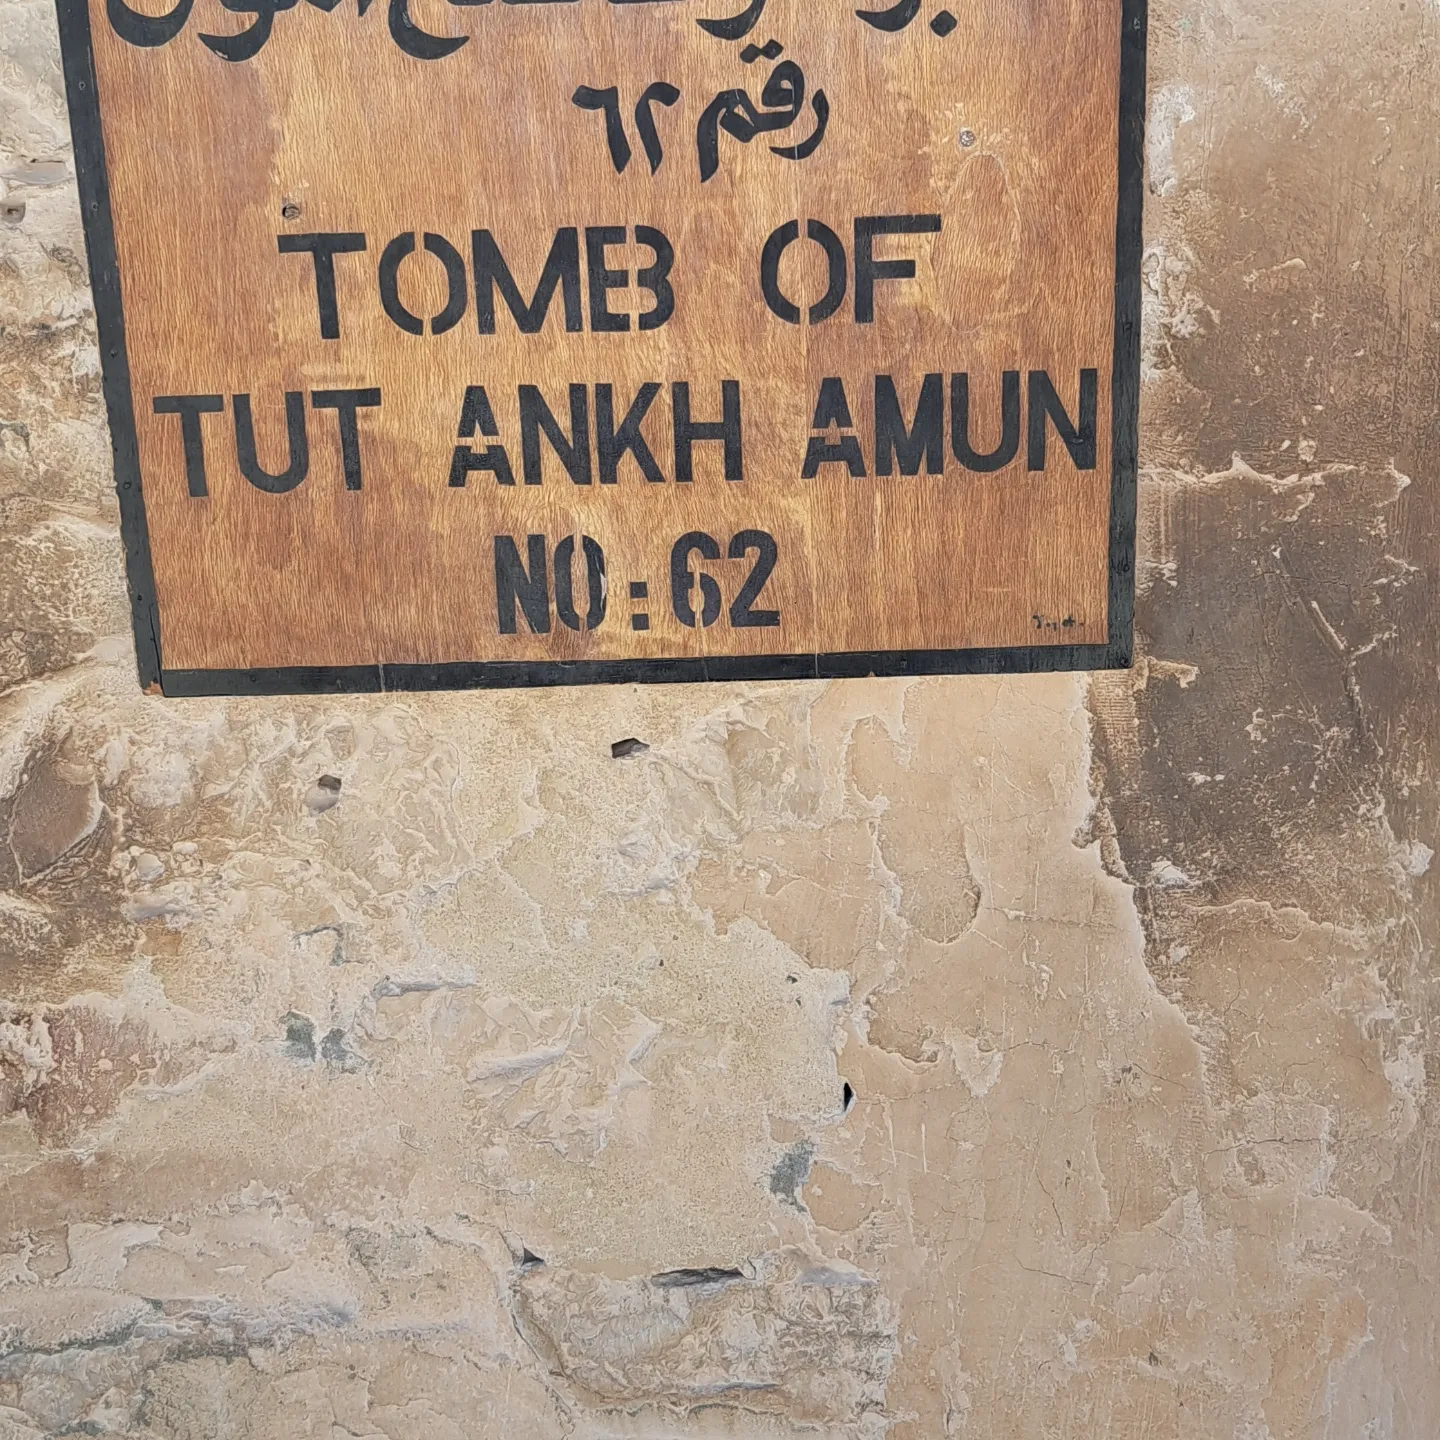 رقم ٦٢
TOMB OF
TUT ANKH AMUN
NO: 62